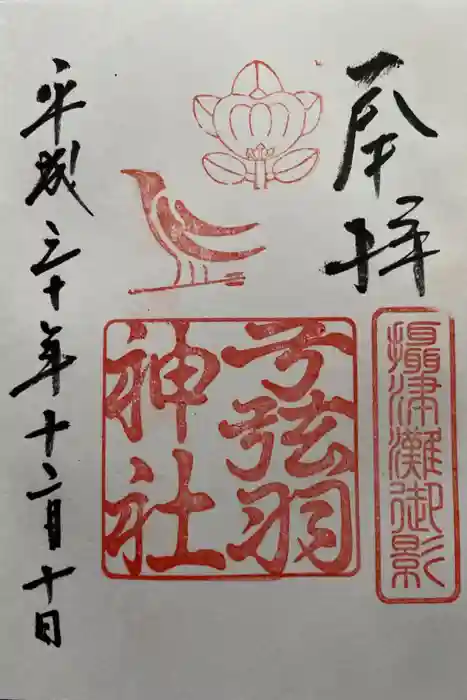 奉拝
摂津灘御影
弓弦羽
神社
平成三十年十二月十日